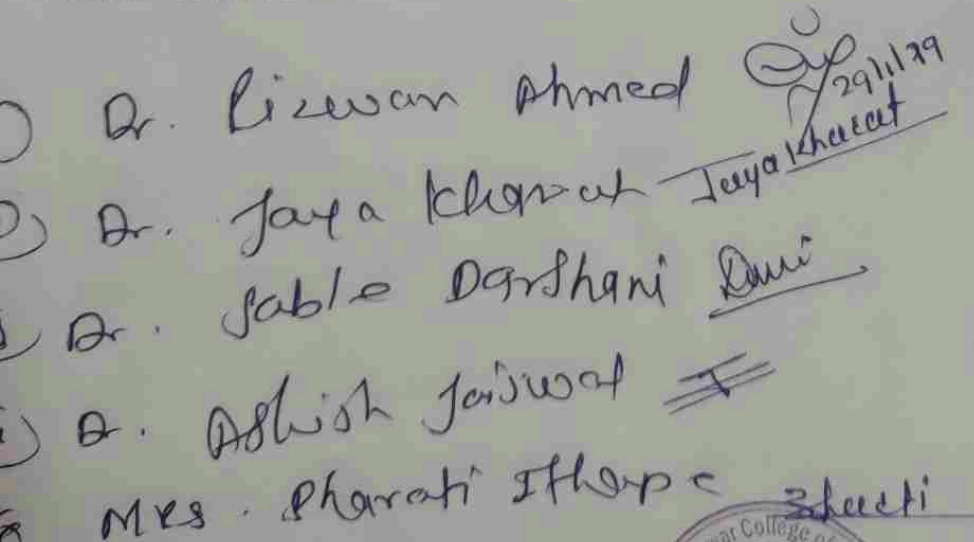 Dr. Rizwan Ahmed 29/1/19
2) Dr. Jaya Kharat Jaya Kharat
Dr. Sable Darshani
Dr. Ashish Jaiswal
Mrs. Bharati Ithape Bharti
ar College of